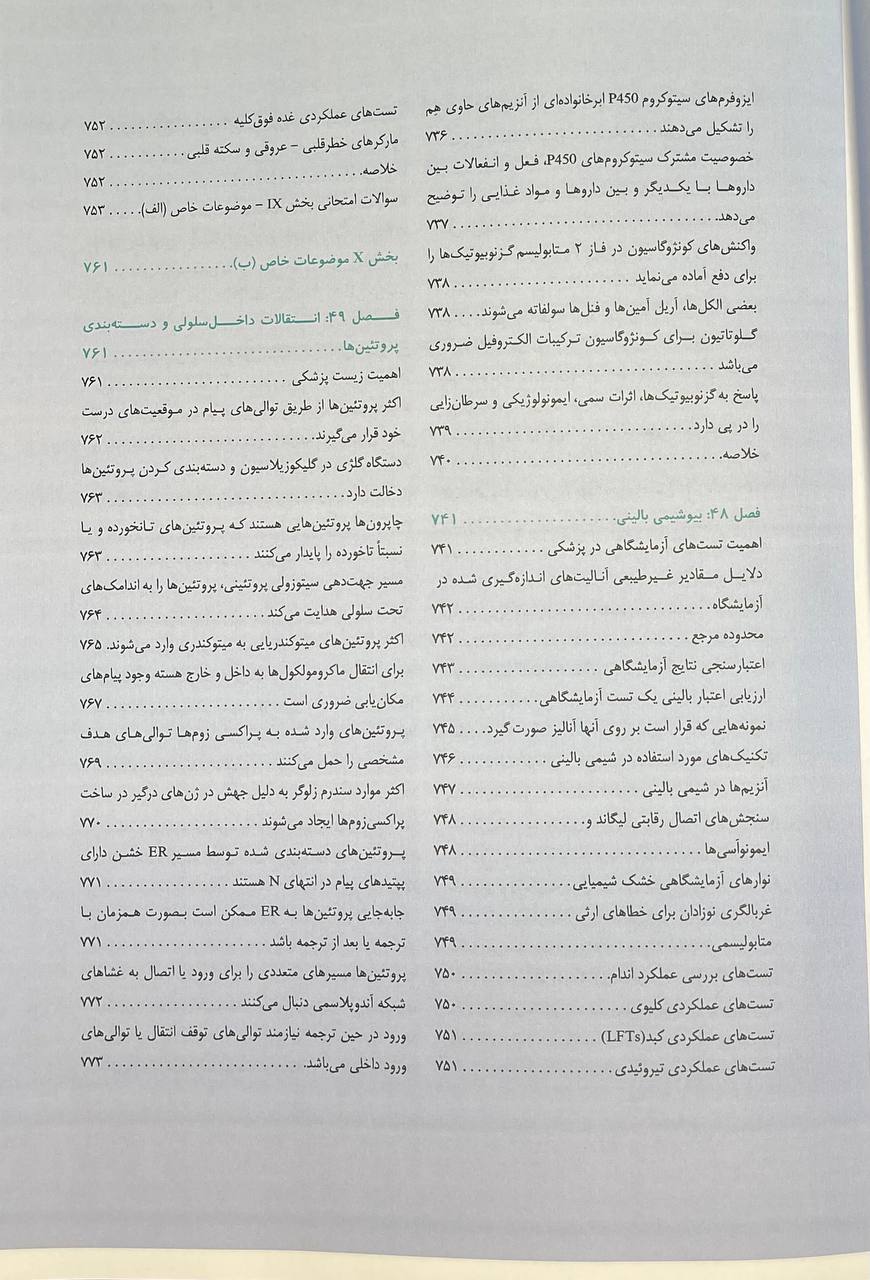 ایزوفرم‌های سیتوکروم P450 ابرخانواده‌ای از آنزیم‌های حاوی هِم
را تشکیل می‌دهند ............................ ۷۳۶
خصوصیت مشترک سیتوکروم‌های P450، فعل و انفعالات بین
داروها با یکدیگر و بین داروها و مواد غذایی را توضیح
می‌دهد..................................... ۷۳۷
واکنش‌های کونژوگاسیون در فاز ۲ متابولیسم گزنوبیوتیک‌ها را
برای دفع آماده می‌نماید ........................ ۷۳۸
بعضی الکل‌ها، آریل آمین‌ها و فنل‌ها سولفاته می‌شوند.... ۷۳۸
گلوتاتیون برای کونژوگاسیون ترکیبات الکتروفیل ضروری
می‌باشد ................................... ۷۳۸
پاسخ به گزنوبیوتیک‌ها، اثرات سمی، ایمونولوژیکی و سرطان‌زایی
را در پی دارد............................... ۷۳۹
خلاصه..................................... ۷۴۰
فصل ۴۸: بیوشیمی بالینی..................... ۷۴۱
اهمیت تست‌های آزمایشگاهی در پزشکی ............ ۷۴۱
دلایل مقادیر غیرطبیعی آنالیت‌های اندازه‌گیری شده در
آزمایشگاه................................... ۷۴۲
محدوده مرجع ............................... ۷۴۲
اعتبارسنجی نتایج آزمایشگاهی ................... ۷۴۳
ارزیابی اعتبار بالینی یک تست آزمایشگاهی............ ۷۴۴
نمونه‌هایی که قرار است بر روی آنها آنالیز صورت گیرد.... ۷۴۵
تکنیک‌های مورد استفاده در شیمی بالینی ............ ۷۴۶
آنزیم‌ها در شیمی بالینی ......................... ۷۴۷
سنجش‌های اتصال رقابتی لیگاند و................ ۷۴۸
ایمونوآسی‌ها ................................. ۷۴۸
نوارهای آزمایشگاهی خشک شیمیایی................ ۷۴۹
غربالگری نوزادان برای خطاهای ارثی ............... ۷۴۹
متابولیسمی.................................. ۷۴۹
تست‌های بررسی عملکرد اندام.................... ۷۵۰
تست‌های عملکردی کلیوی ....................... ۷۵۰
تست‌های عملکردی کبد(LFTs) ................... ۷۵۱
تست‌های عملکردی تیروئیدی..................... ۷۵۱
تست‌های عملکردی غده فوق‌کلیه ................. ۷۵۲
مارکرهای خطرقلبی – عروقی و سکته قلبی........... ۷۵۲
خلاصه..................................... ۷۵۲
سوالات امتحانی بخش IX – موضوعات خاص (الف)..... ۷۵۳
بخش X موضوعات خاص (ب)................. ۷۶۱
فصل ۴۹: انتقالات داخل‌سلولی و دسته‌بندی
پروتئین‌ها................................. ۷۶۱
اهمیت زیست پزشکی .......................... ۷۶۱
اکثر پروتئین‌ها از طریق توالی‌های پیام در موقعیت‌های درست
خود قرار می‌گیرند............................. ۷۶۲
دستگاه گلژی در گلیکوزیلاسیون و دسته‌بندی کردن پروتئین‌ها
دخالت دارد................................. ۷۶۳
چاپرون‌ها پروتئین‌هایی هستند که پروتئین‌های تانخورده و یا
نسبتاً تاخورده را پایدار می‌کنند .................... ۷۶۳
مسیر جهت‌دهی سیتوزولی پروتئینی، پروتئین‌ها را به اندامک‌های
تحت سلولی هدایت می‌کند ....................... ۷۶۴
اکثر پروتئین‌های میتوکندریایی به میتوکندری وارد می‌شوند. ۷۶۵
برای انتقال ماکرومولکول‌ها به داخل و خارج هسته وجود پیام‌های
مکان‌یابی ضروری است ......................... ۷۶۷
پروتئین‌های وارد شده به پراکسی زوم‌ها توالی‌های هدف
مشخصی را حمل می‌کنند ........................ ۷۶۹
اکثر موارد سندرم زلوگر به دلیل جهش در ژن‌های درگیر در ساخت
پراکسی‌زوم‌ها ایجاد می‌شوند ...................... ۷۷۰
پروتئین‌های دسته‌بندی شده توسط مسیر ER خشن دارای
پپتیدهای پیام در انتهای N هستند ................. ۷۷۱
جابه‌جایی پروتئین‌ها به ER ممکن است بصورت همزمان با
ترجمه یا بعد از ترجمه باشد ....................... ۷۷۱
پروتئین‌ها مسیرهای متعددی را برای ورود یا اتصال به غشاهای
شبکه آندوپلاسمی دنبال می‌کنند ................... ۷۷۲
ورود در حین ترجمه نیازمند توالی‌های توقف انتقال یا توالی‌های
ورود داخلی می‌باشد............................ ۷۷۳